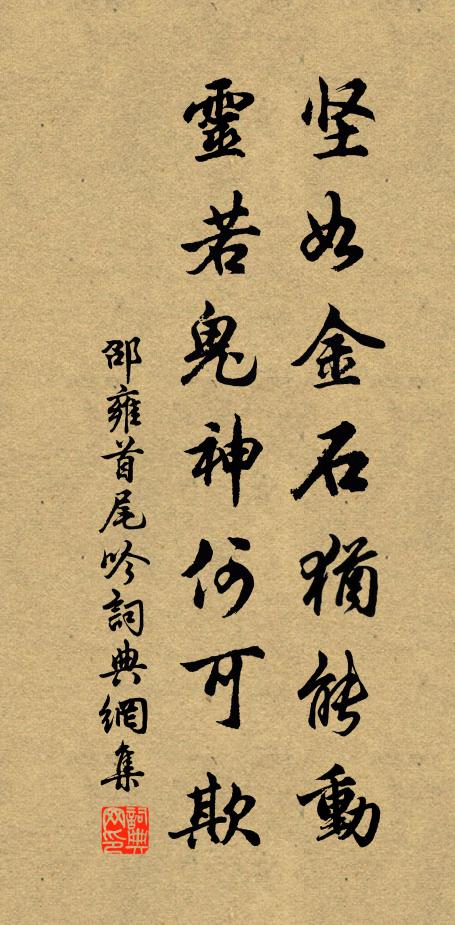 坚如金石犹能動
靈若鬼神何可欺
邵雍首尾吟詞典網集
詞典網印